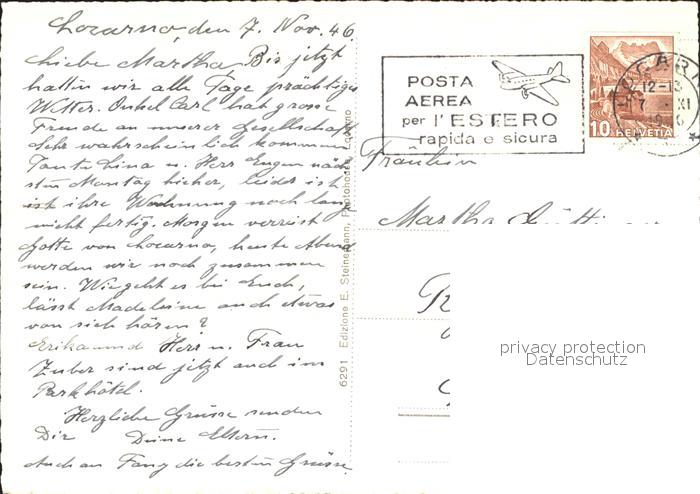 Locarno, den 7. Nov. 46.
Liebe Martha, Bis jetzt
hatten wir alle Tage prächtiges
Wetter. Onkel Carl hat grosse
Freude an unserer Gesellschaft
Sehr wahrscheinlich kommen
Tante Lina u. Herr Eugen näch
sten Montag hieher, leider ist
ist ihre Wohnung noch lang
nicht fertig. Morgen verreist
Gotte von Locarno, heute Abend
werden wir noch zusammen
sein. Wie geht es bei Euch,
lässt Madeleine auch etwas
von sich hören?
Erika und Herr u. Frau
Zuber sind jetzt auch im
Parkhôtel.
Herzliche Grüsse senden
Dir Deine Eltern.
Auch an Fany die besten Grüsse
6291 Edizione E. Steinemann, Photohaus, Locarno
POSTA
AEREA
per l'ESTERO
rapida e sicura
10 HELVETIA
12-13
7 XI
Fräulein
Martha
privacy protection
Datenschutz